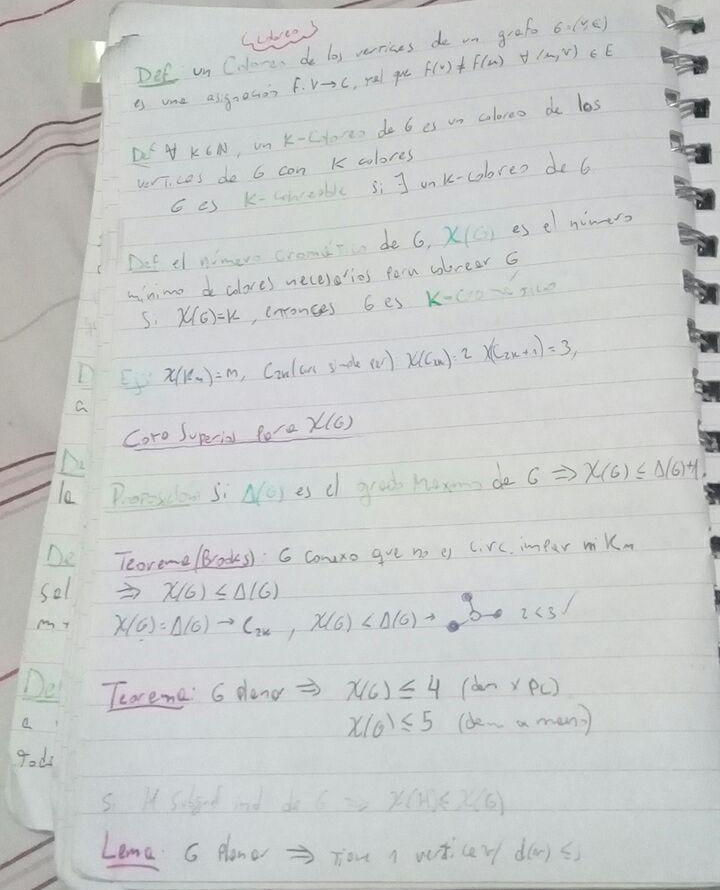 (Coloreo)
Def un Coloreo de los vertices de un grafo G=(V,E)
es una asignación f:V→C, tal que f(v)≠f(u) ∀(u,v) ∈ E
Def ∀ K∈N, un K-Coloreo de G es un coloreo de los
vertices de G con K colores
G es K-coloreable si ∃ un K-coloreo de G
Def el número cromático de G, X(G) es el número
mínimo de colores necesarios para colorear G
Si X(G)=K, entonces G es K-cromático
Ej: X(Kn)=n, C2k(circ simple par) X(C2k)=2 X(C2k+1)=3,
Cota Superior para X(G)
Proposición Si Δ(G) es el grado Maximo de G ⇒ X(G) ≤ Δ(G)+1.
Teorema (Brooks): G conexo que no es circ. impar ni Kn
⇒ X(G) ≤ Δ(G)
X(G)=Δ(G) → C2k, X(G) < Δ(G) → 2<3 ✓
Teorema: G planar ⇒ X(G) ≤ 4 (dem x PC)
X(G) ≤ 5 (dem a mano)
Si H subgrf ind de G ⇒ X(H) ≤ X(G)
Lema: G planar ⇒ Tiene 1 vertice v/ d(v) ≤ 5
De
a
De
la
De
sel
De
a
todo